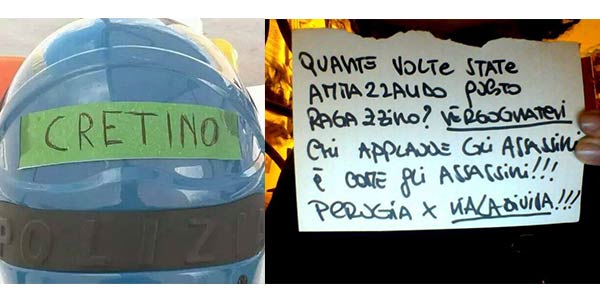 CRETINO
POLIZI
QUANTE VOLTE STATE
AMMAZZANDO QUESTO
RAGAZZINO? VERGOGNATEVI
CHI APPLAUDE GLI ASSASSINI
È COME GLI ASSASSINI!!!
PERUGIA X VIA LA DIVISA!!!